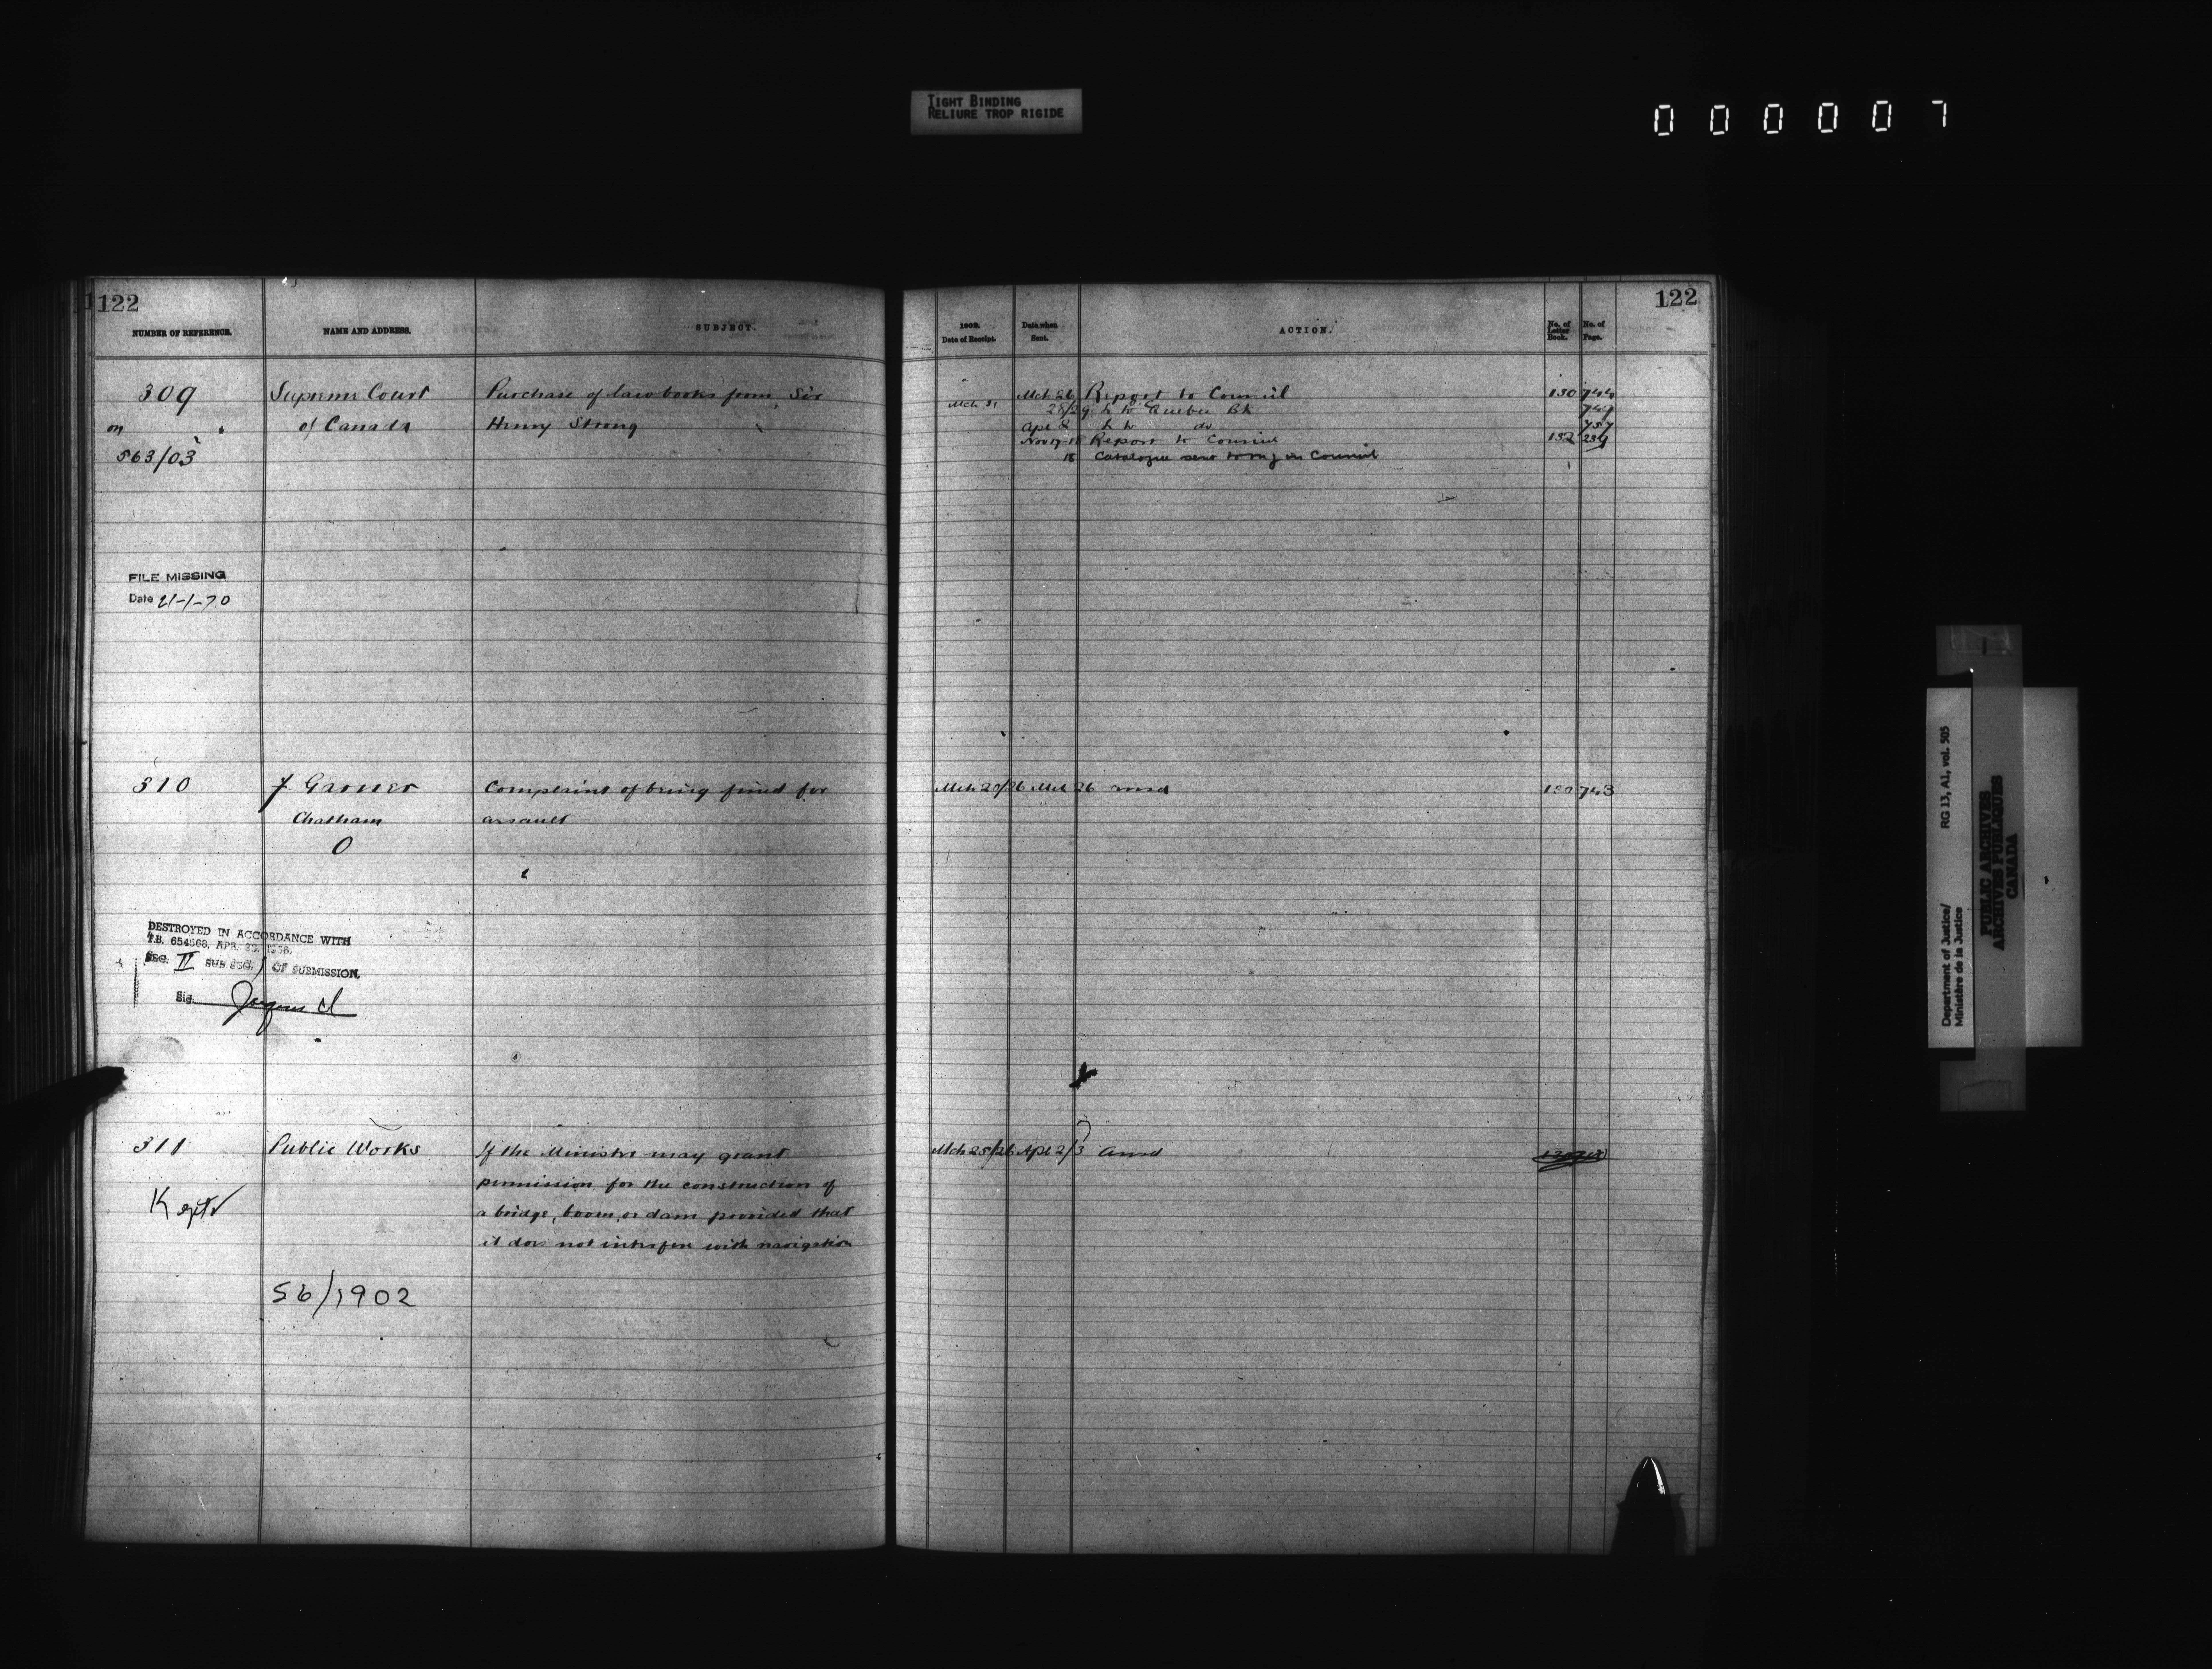 TIGHT BINDING
RELIURE TROP RIGIDE
000007
122
NUMBER OF REFERENCE.
NAME AND ADDRESS.
SUBJECT.
309
on
563/03
Supreme Court
of Canada
Purchase of law books from Sir
Henry Strong
FILE MISSING
Date 21-1-70
310
J. Garner
Chatham
O
Complaint of being fined for
assault
DESTROYED IN ACCORDANCE WITH
T.B. 654568, APR. 1956.
SEC. II SUB SEC. 1 OF SUBMISSION.
Sig.
311
Public Works
If the Minister may grant
permission for the construction of
a bridge, boom, or dam provided that
it does not interfere with navigation
56/1902
122
1902.
Date of Receipt.
Date when
Sent.
ACTION.
No. of
Letter
Book.
No. of
Page.
Mch 31
Mch 26 Report to Council 130 744
28/29 Quebec Bk 749
Apl 8 do 757
Nov 17-18 Report to Council 132 239
18 Catalogue sent in Council
Mch 20/26 Mch 26 ansd 130 743
Mch 25/26 Apl 2/3 ansd
Department of Justice/ RG 13, A1, vol. 505
Ministère de la Justice
PUBLIC ARCHIVES
ARCHIVES PUBLIQUES
CANADA